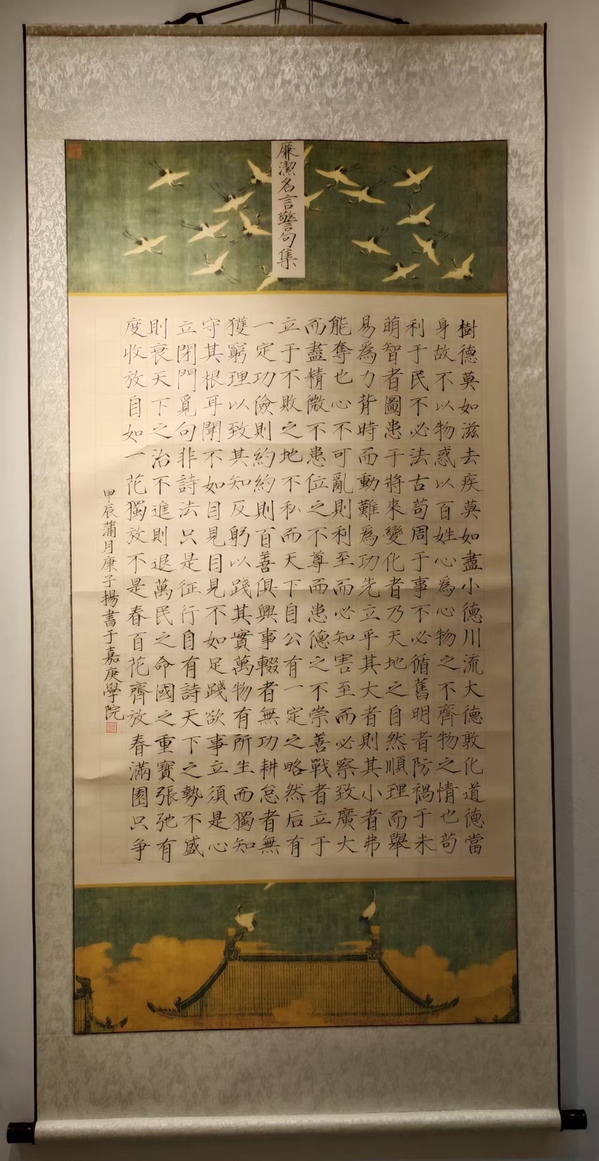 廉潔名言警句集
樹德莫如滋去疾莫如盡小德川流大德敦化道德當
身故不以物惑以百姓心爲心物之不齊物之情也苟
利于民不必法古苟周于事不必循舊明者防禍于未
萌智者圖患于將來變化者乃天地之自然順理而舉
易爲力背時而動難爲功先立乎其大者則其小者弗
能奪也心不可亂則利至而必知害至而必察致廣大
而盡精微不患位之不尊而患德之不崇善戰者立于
立于不敗之地不私而天下自公有一定之略然后有
一定功儉則約約則百善俱興事輟者無功耕怠者無
獲窮理以致其知反躬以踐其實萬物有所生而獨知
守其根耳聞不如目見目見不如足踐欲事立須是心
立閉門覓句非詩法只是征行自有詩天下之勢不盛
則衰天下之治不進則退萬民之命國之重寶張弛有
度收放自如一花獨放不是春百花齊放春滿園只爭
甲辰蒲月康子揚書于嘉庚學院